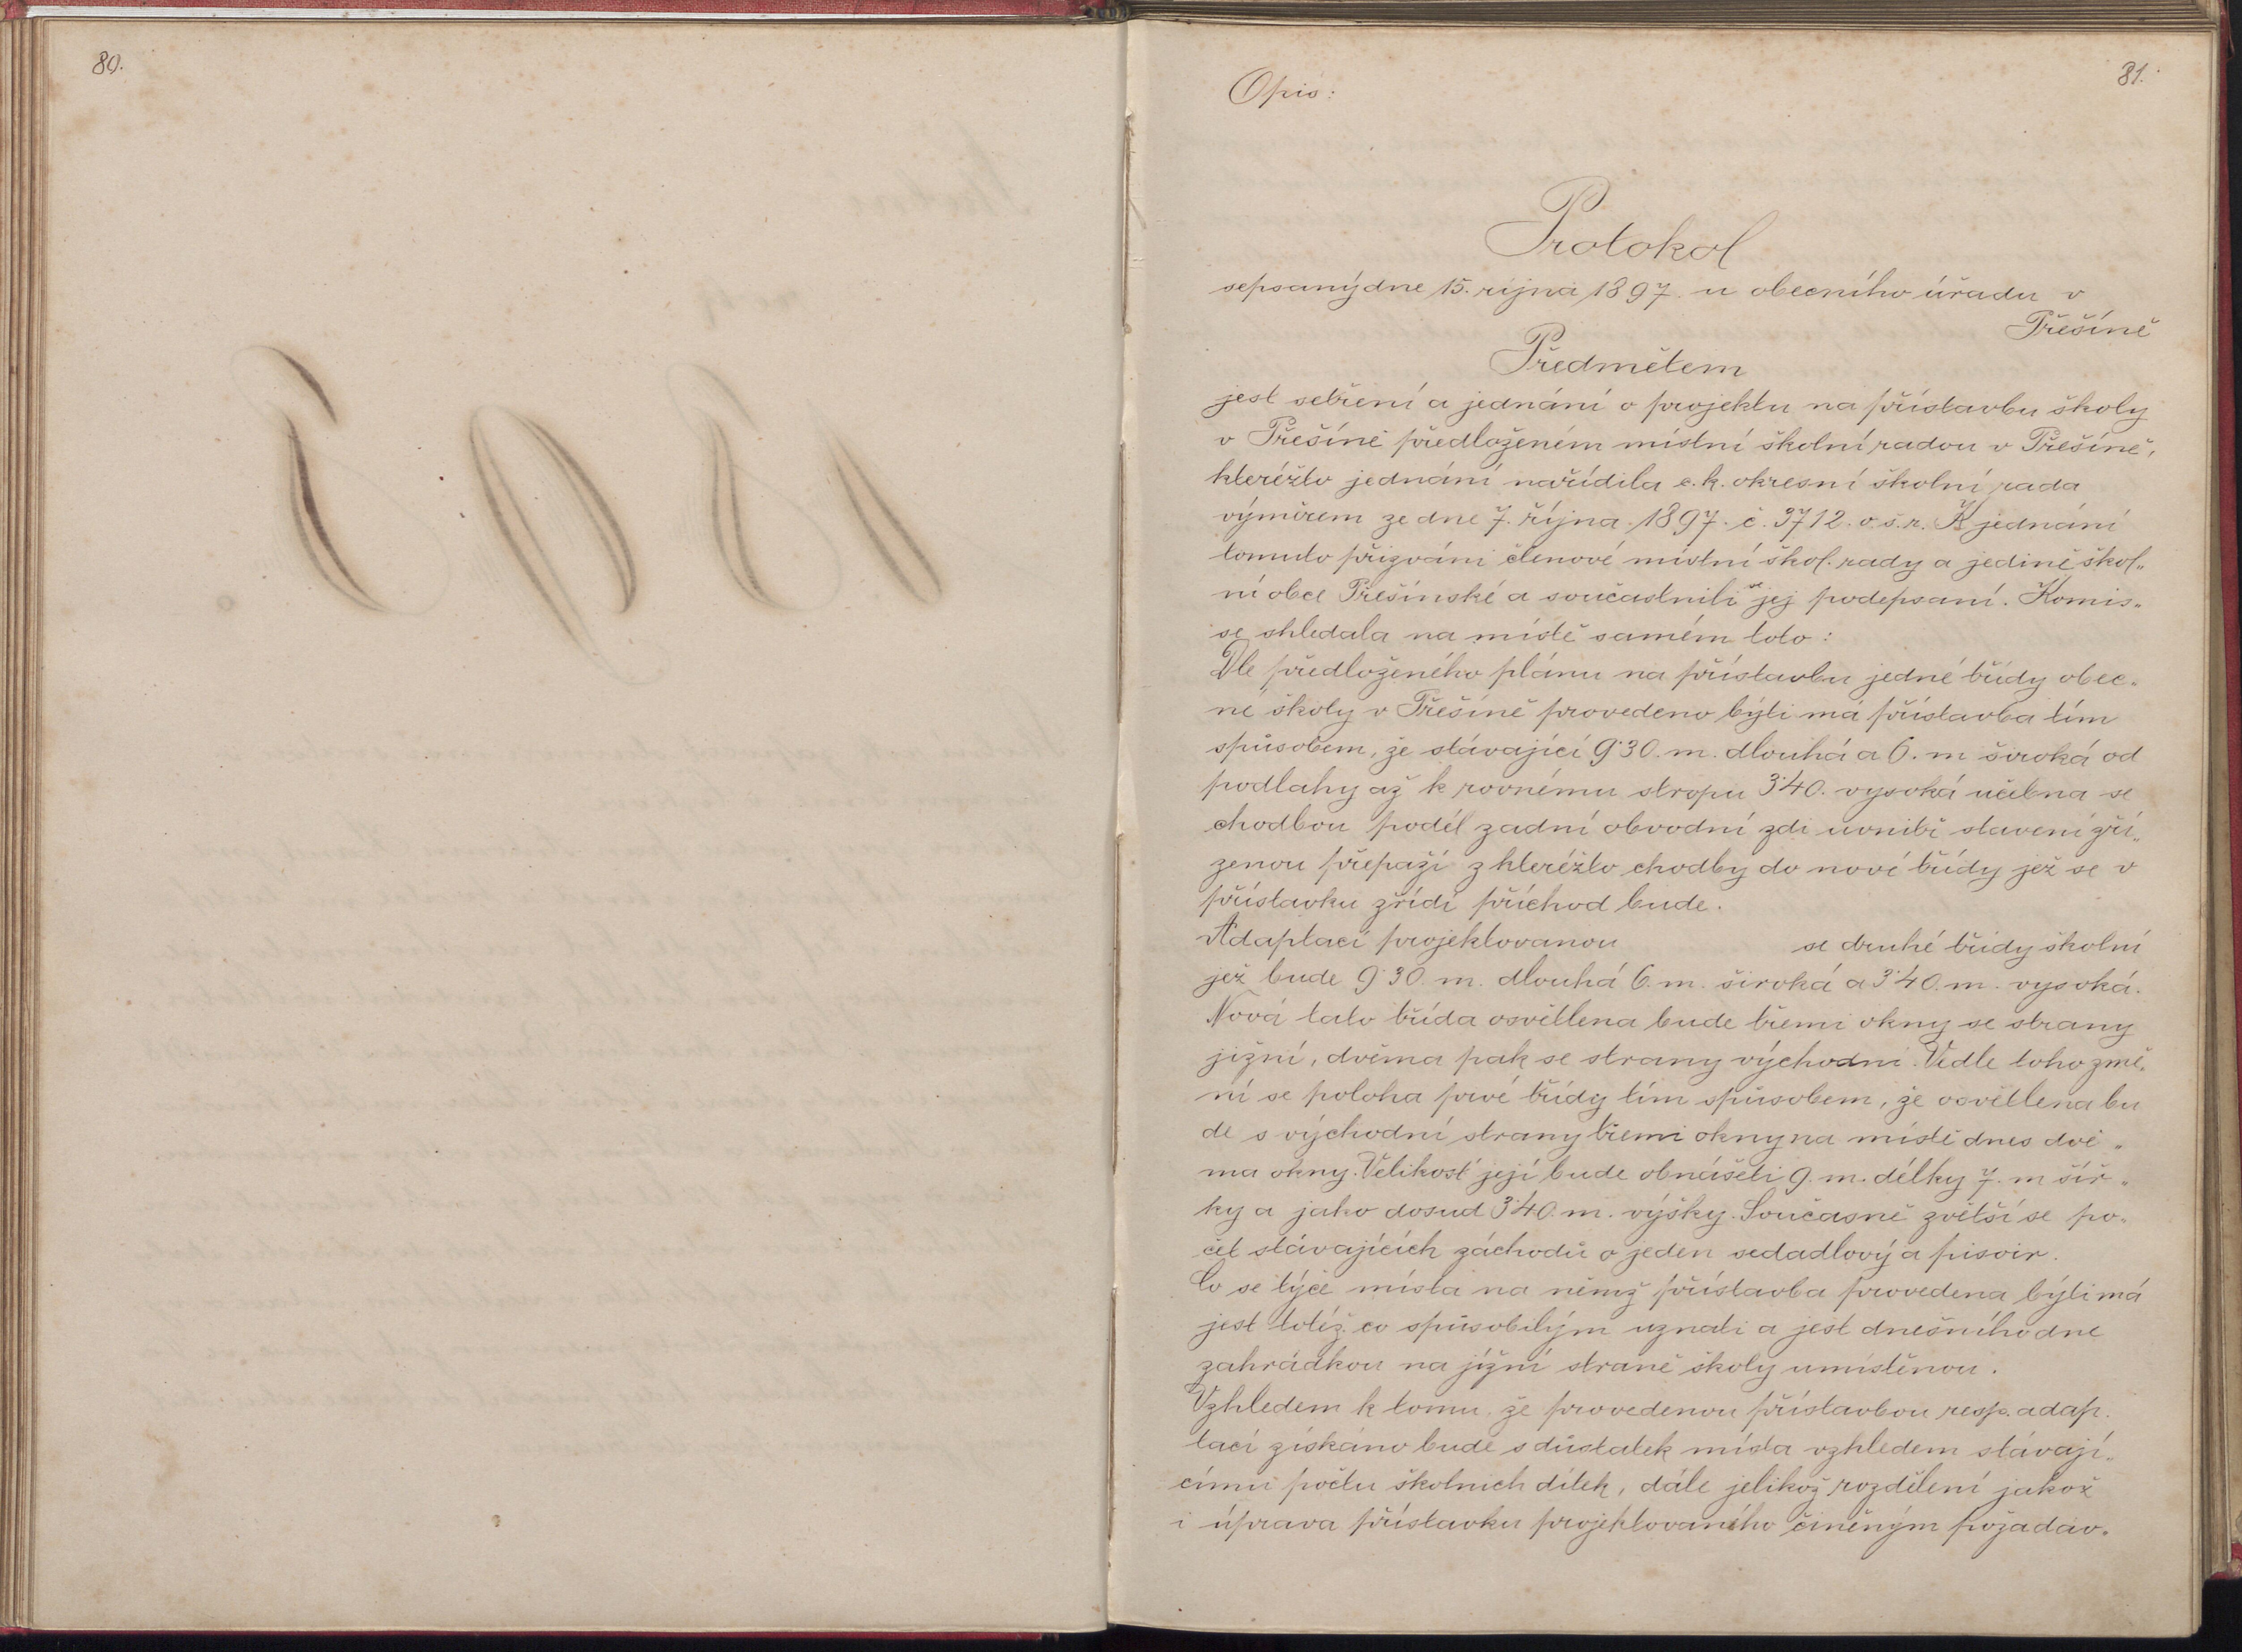 80.
81.
Opis:
Protokol
sepsaný dne 15. října 1897. u obecního úřadu v
Třešíně
Předmětem
jest setření a jednání o projektu na přístavbu školy
v Třešíně předloženém místní školní radou v Třešíně,
kteréžto jednání nařídila c. k. okresní školní rada
výměrem ze dne 7. října. 1897. č. 3712. o. š. r. K jednání
tomuto přizváni členové místní škol. rady a jediné škol„
ní obce Třešínské a součastnili se jej podepsaní. Komis„
se shledala na místě samém toto:
Dle předloženého plánu na přístavbu jedné třídy obec„
né školy v Třešíně provedeno býti má přístavba tím
spůsobem, že stávající 9·30. m. dlouhá a 6. m široká od
podlahy až k rovnému stropu 3·40. vysoká učebna se
chodbou podél zadní obvodní zdi uvnitř stavení zří„
zenou přepaží z kteréžto chodby do nové třídy jež se v
přístavku zřídí příchod bude.
Adaptací projektovanou se druhé třídy školní
jež bude 9·30. m. dlouhá 6. m. široká a 3·40. m. vysoká.
Nová tato třída osvětlena bude třemi okny se strany
jižní, dvěma pak se strany východní. Vedle toho změ„
ní se poloha prvé třídy tím spůsobem, že osvětlena bu
de s východní strany třemi okny na místě dnes dvě„
ma okny. Velikost její bude obnášeti 9. m. délky 7. m šíř„
ky a jako dosud 3·40. m. výšky. Současně zvětší se po„
čet stávajících záchodů o jeden sedadlový a pisoir.
Co se týče místa na němž přístavba provedena býti má
jest totéž co spůsobilým uznati a jest dnešního dne
zahrádkou na jižní straně školy umístěnou.
Vzhledem k tomu, že provedenou přístavbou resp. adap.
tací získáno bude s důstatek místa vzhledem stávají„
címu počtu školních dítek, dále jelikož rozdělení jakož
i úprava přístavku projektovaného činěným požadav„